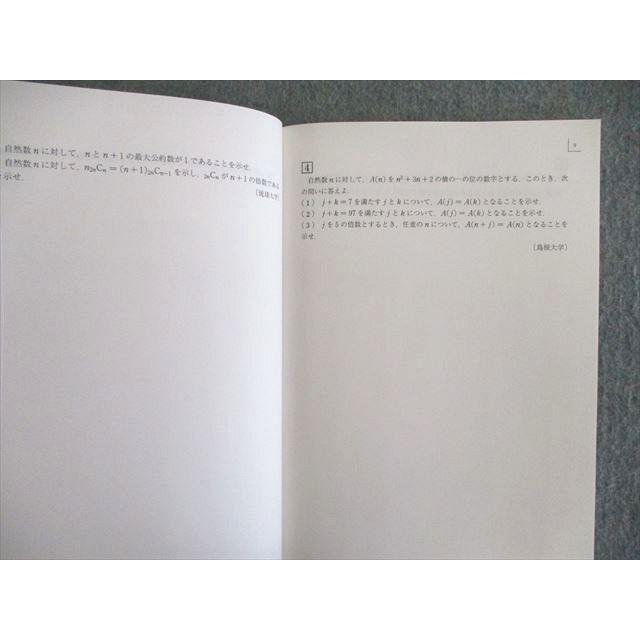 自然数 n に対して, n と n+1 の最大公約数が1であることを示せ.
自然数 n に対して, n₂ₙCₙ = (n+1)₂ₙCₙ₋₁ を示し, ₂ₙCₙ が n+1 の倍数である
示せ.
〔琉球大学〕
9
4
自然数 n に対して, A(n) を n²+3n+2 の値の一の位の数字とする. このとき, 次
の問いに答えよ.
(1) j+k=7 を満たす j と k について, A(j)=A(k) となることを示せ.
(2) j+k=97 を満たす j と k について, A(j)=A(k) となることを示せ.
(3) j を5の倍数とするとき, 任意の n について, A(n+j)=A(n) となることを
示せ.
〔島根大学〕